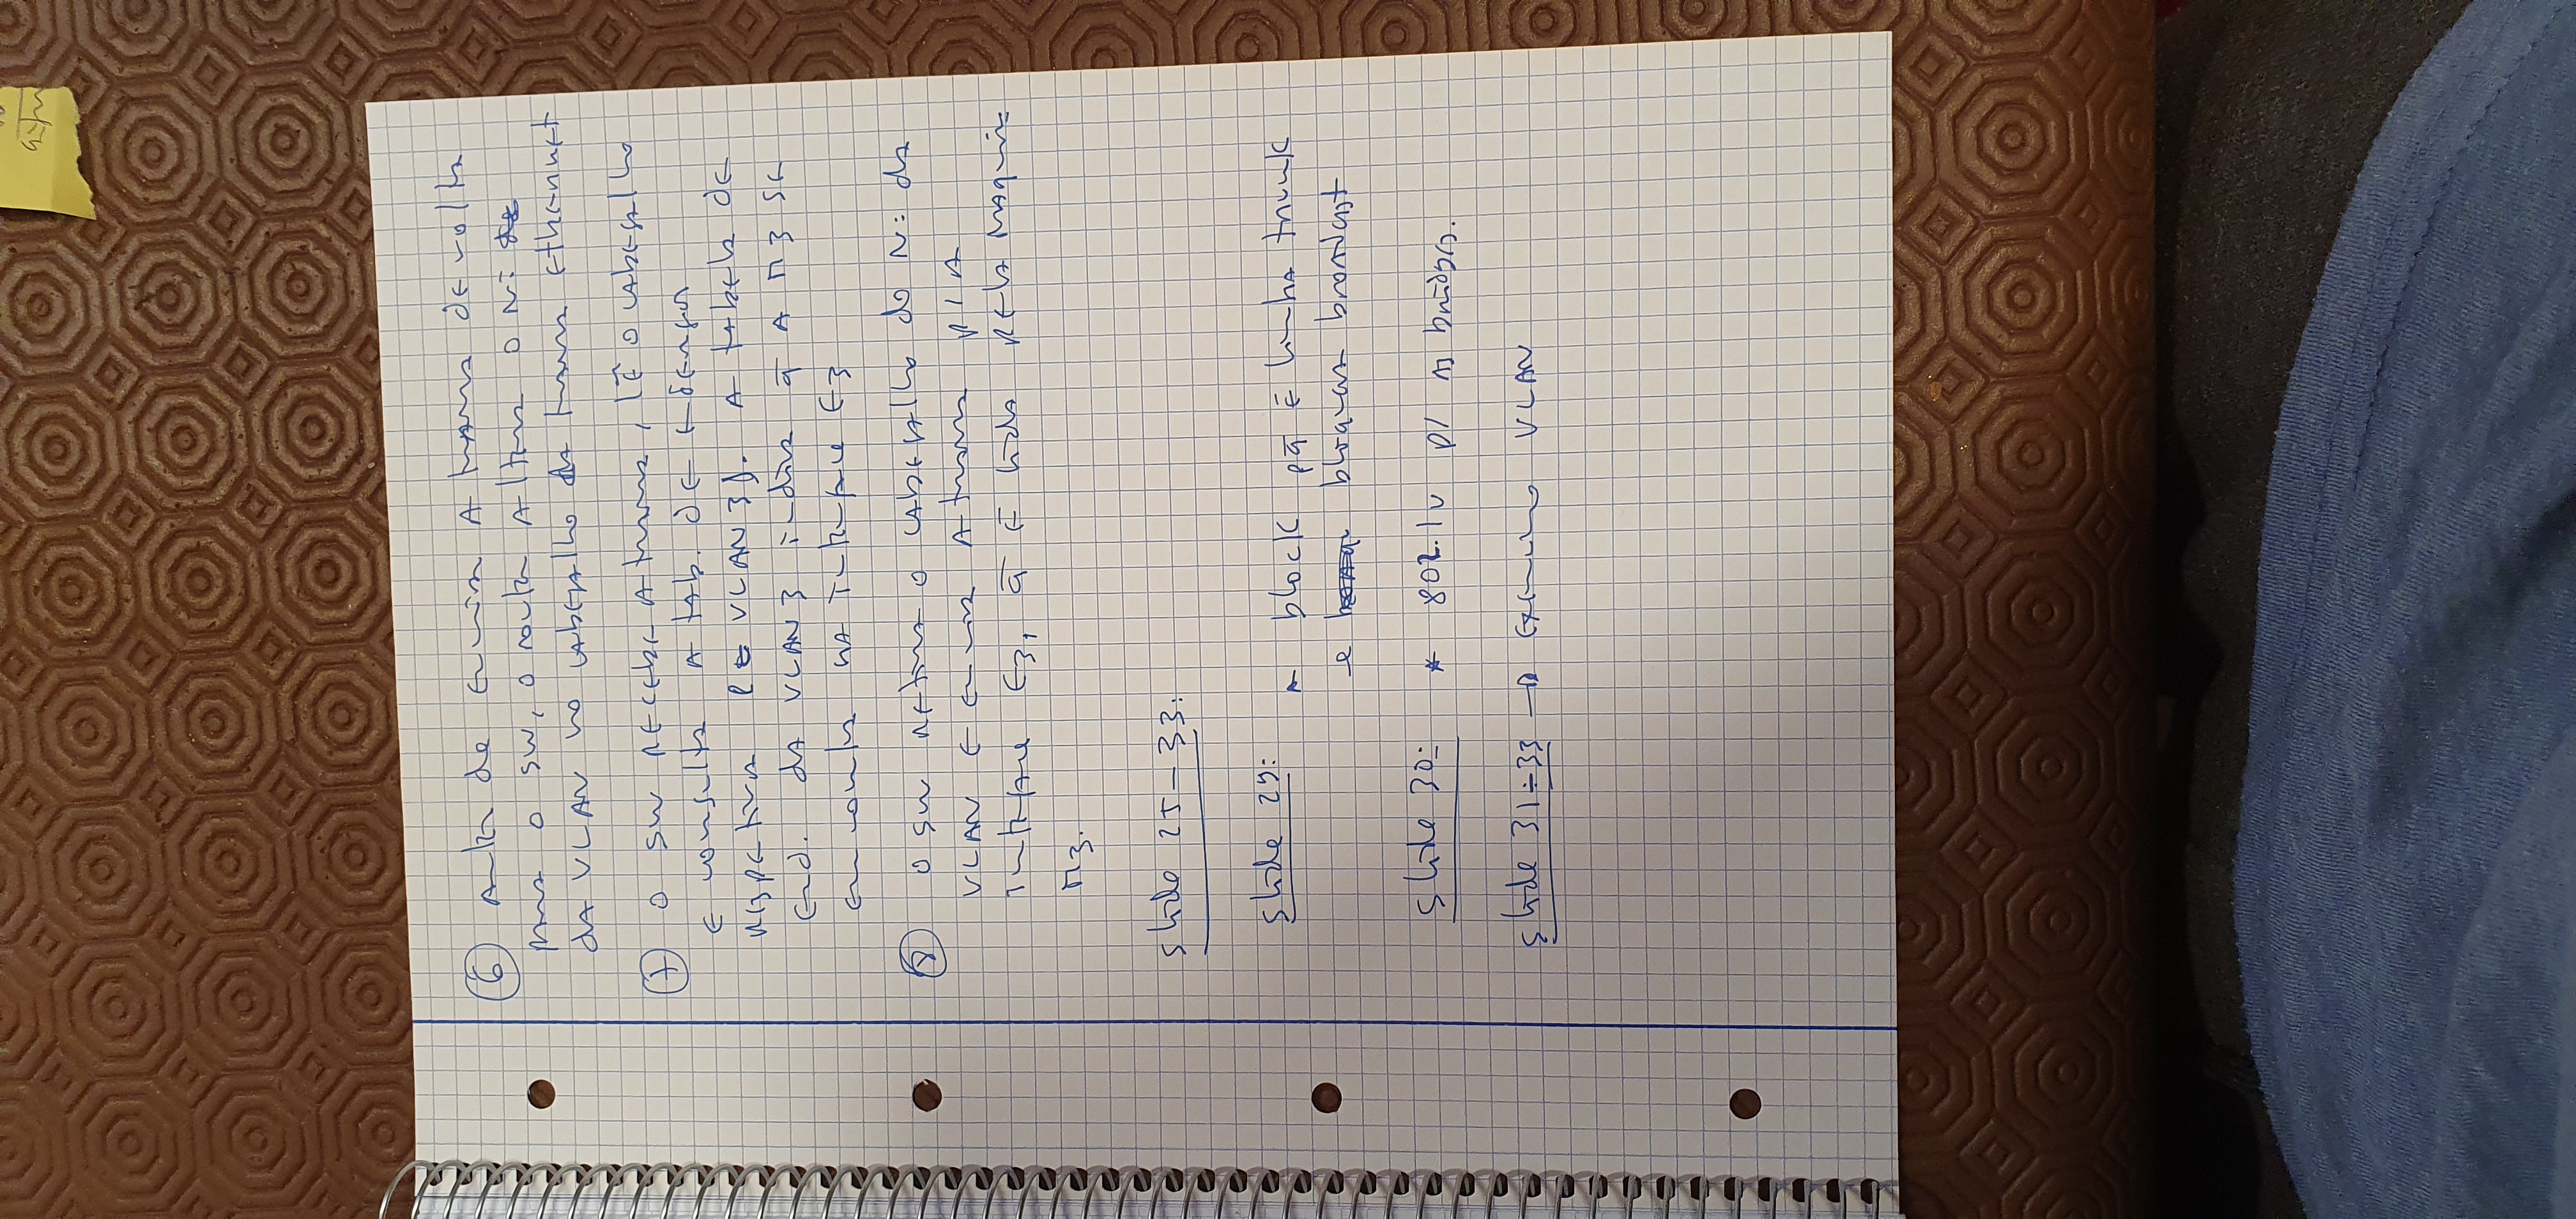 ⑥ Antes de enviar A trama de volta
para o SW, o router Altera o Nº
dA VLAN no cAbeçAlho dA trama ethernet
⑦ o SW recebe A trama, lê o cAbeçAlho
e consulta A tAb. de endereços
respectiva (e VLAN 3). A tAbela de
end. dA VLAN 3 indica q̄ A M3 se
encontra nA Interface E3
⑧ o SW retira o cAbeçAlho do Nº da
VLAN e envia A trama p/ A
Interface E3, q̄ é lida pela máquina
M3.
slide 25-33:
slide 29:
block pq̄ é linha trunk
e bloquear broadcast
slide 30: * 802.1v p/ as bridges.
slide 31÷33 → Exemplo VLAN